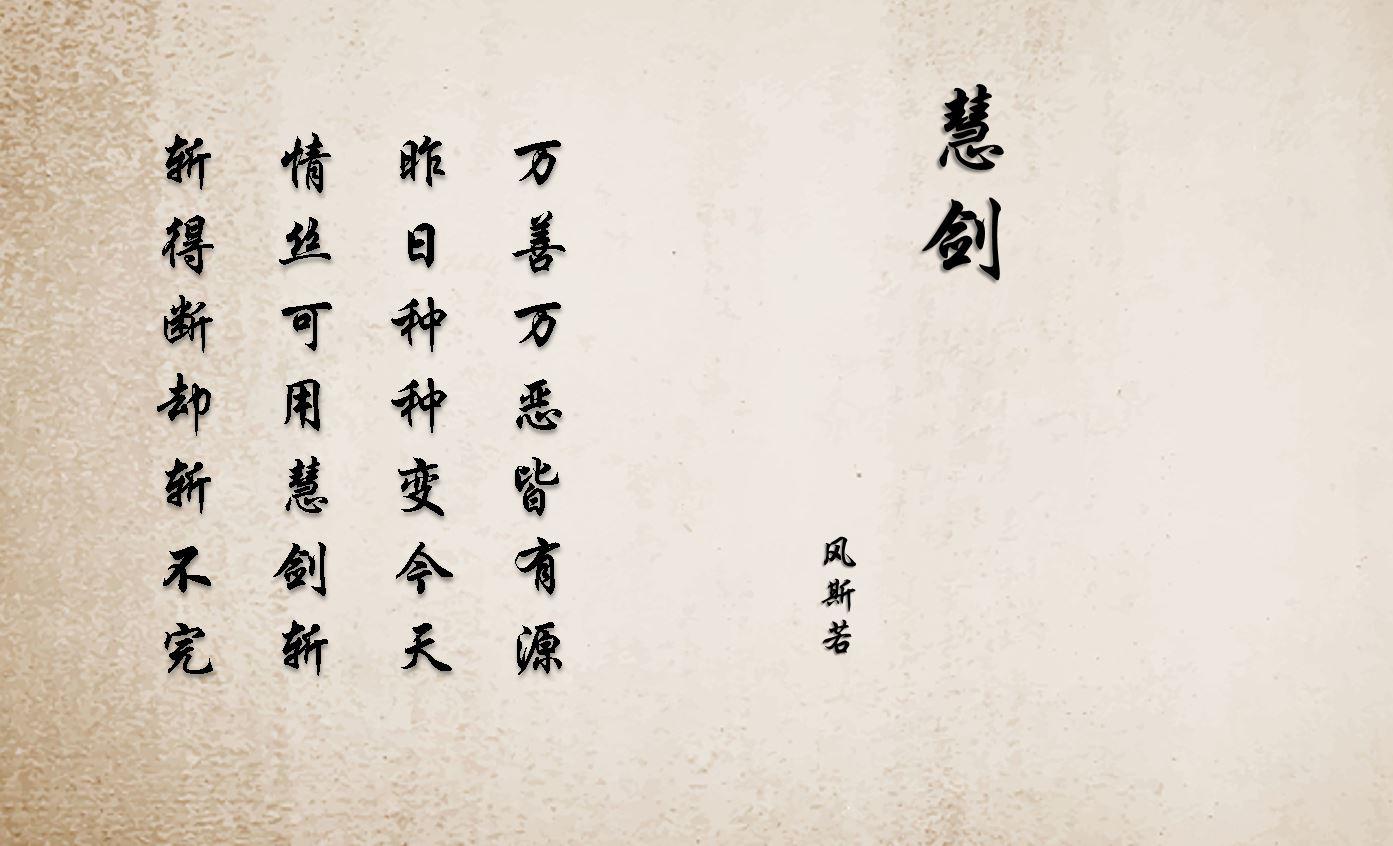 慧剑
风斯若
万善万恶皆有源
昨日种种变今天
情丝可用慧剑斩
斩得断却斩不完